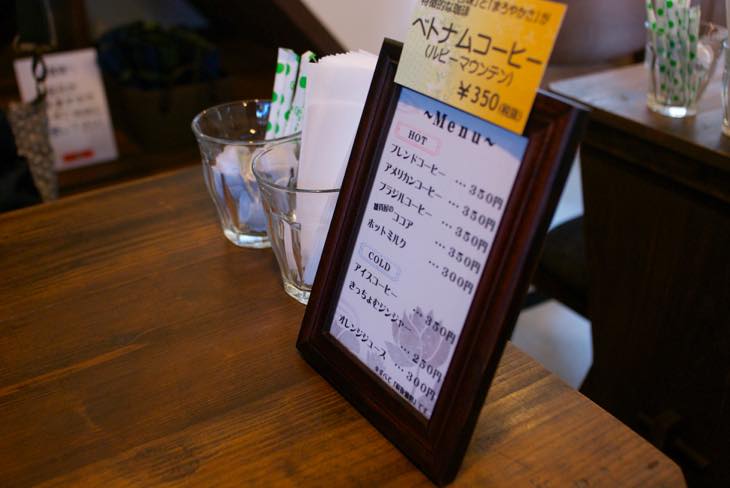 」と「まろやかさ」が
特徴的な珈琲
ベトナムコーヒー
(ルビーマウンテン)
¥350(税抜)
~Menu~
HOT
ブレンドコーヒー …350円
アメリカンコーヒー …350円
ブラジルコーヒー …350円
ココア …350円
ホットミルク …300円
COLD
アイスコーヒー …350円
きっちょむジンジャー …250円
オレンジジュース …300円
※すべて「税抜価格」です